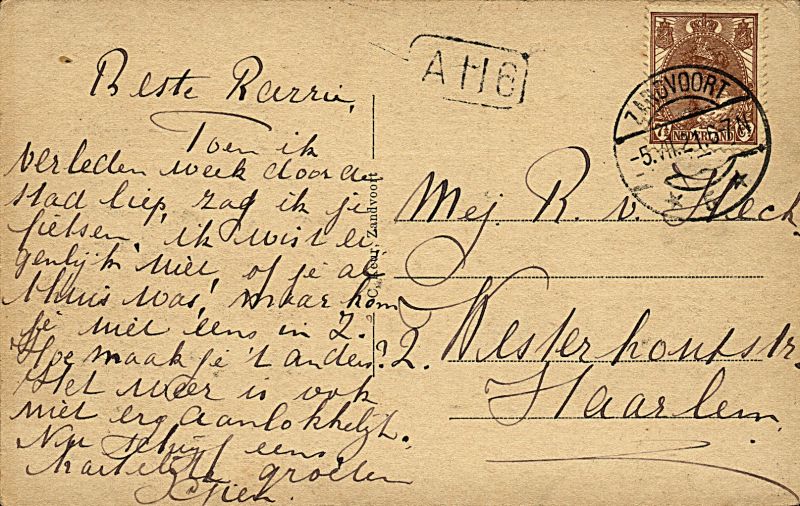 Beste Karrie,
Toen ik
verleden week door de
stad liep, zag ik je
fietsen. ik wist ei
genlijk niet of je al
thuis was, maar kom
je niet eens in Z.
Hoe maak je 't anders?
Het weer is ook
niet erg aanlokkelijk.
Nu schrijf eens
hartelijke groeten
A 116
C. Keur, Zandvoort
7½ NEDERLAND
ZANDVOORT
-5.VII.21. 5-7N
Mej. R. v.
2. Westerhoutstr.
Haarlem.